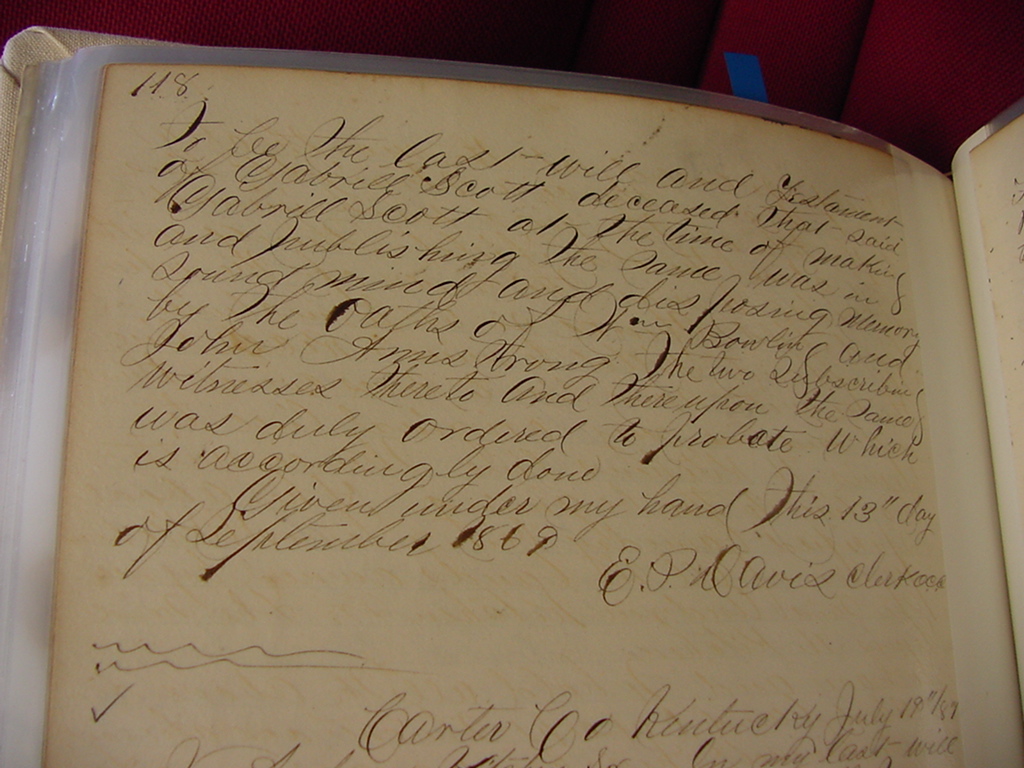 118
To be the last will and Testament
of Gabriel Scott deceased that said
Gabriel Scott at the time of making
and publishing the same was in
sound mind and disposing Memory
by the Oaths of Bowling and
John Armstrong the two Subscribing
witnesses thereto and thereupon the same
was duly ordered to probate which
is accordingly done
Given under my hand This 13th day
of September 1869
E. P. Davis Clerk
Carter Co Kentucky July 19th
my last will